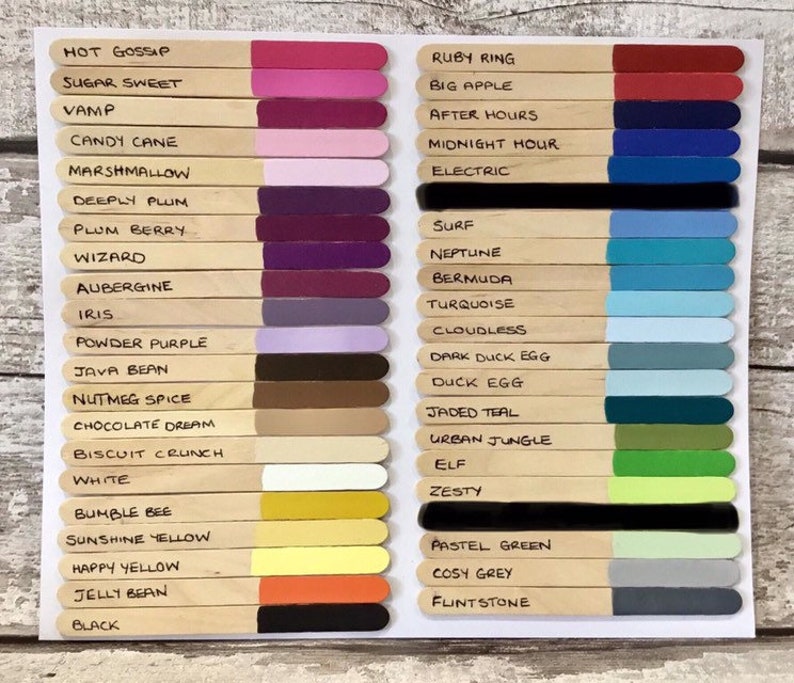 HOT GOSSIP
SUGAR SWEET
VAMP
CANDY CANE
MARSHMALLOW
DEEPLY PLUM
PLUM BERRY
WIZARD
AUBERGINE
IRIS
POWDER PURPLE
JAVA BEAN
NUTMEG SPICE
CHOCOLATE DREAM
BISCUIT CRUNCH
WHITE
BUMBLE BEE
SUNSHINE YELLOW
HAPPY YELLOW
JELLY BEAN
BLACK
RUBY RING
BIG APPLE
AFTER HOURS
MIDNIGHT HOUR
ELECTRIC
SURF
NEPTUNE
BERMUDA
TURQUOISE
CLOUDLESS
DARK DUCK EGG
DUCK EGG
JADED TEAL
URBAN JUNGLE
ELF
ZESTY
PASTEL GREEN
COSY GREY
FLINTSTONE